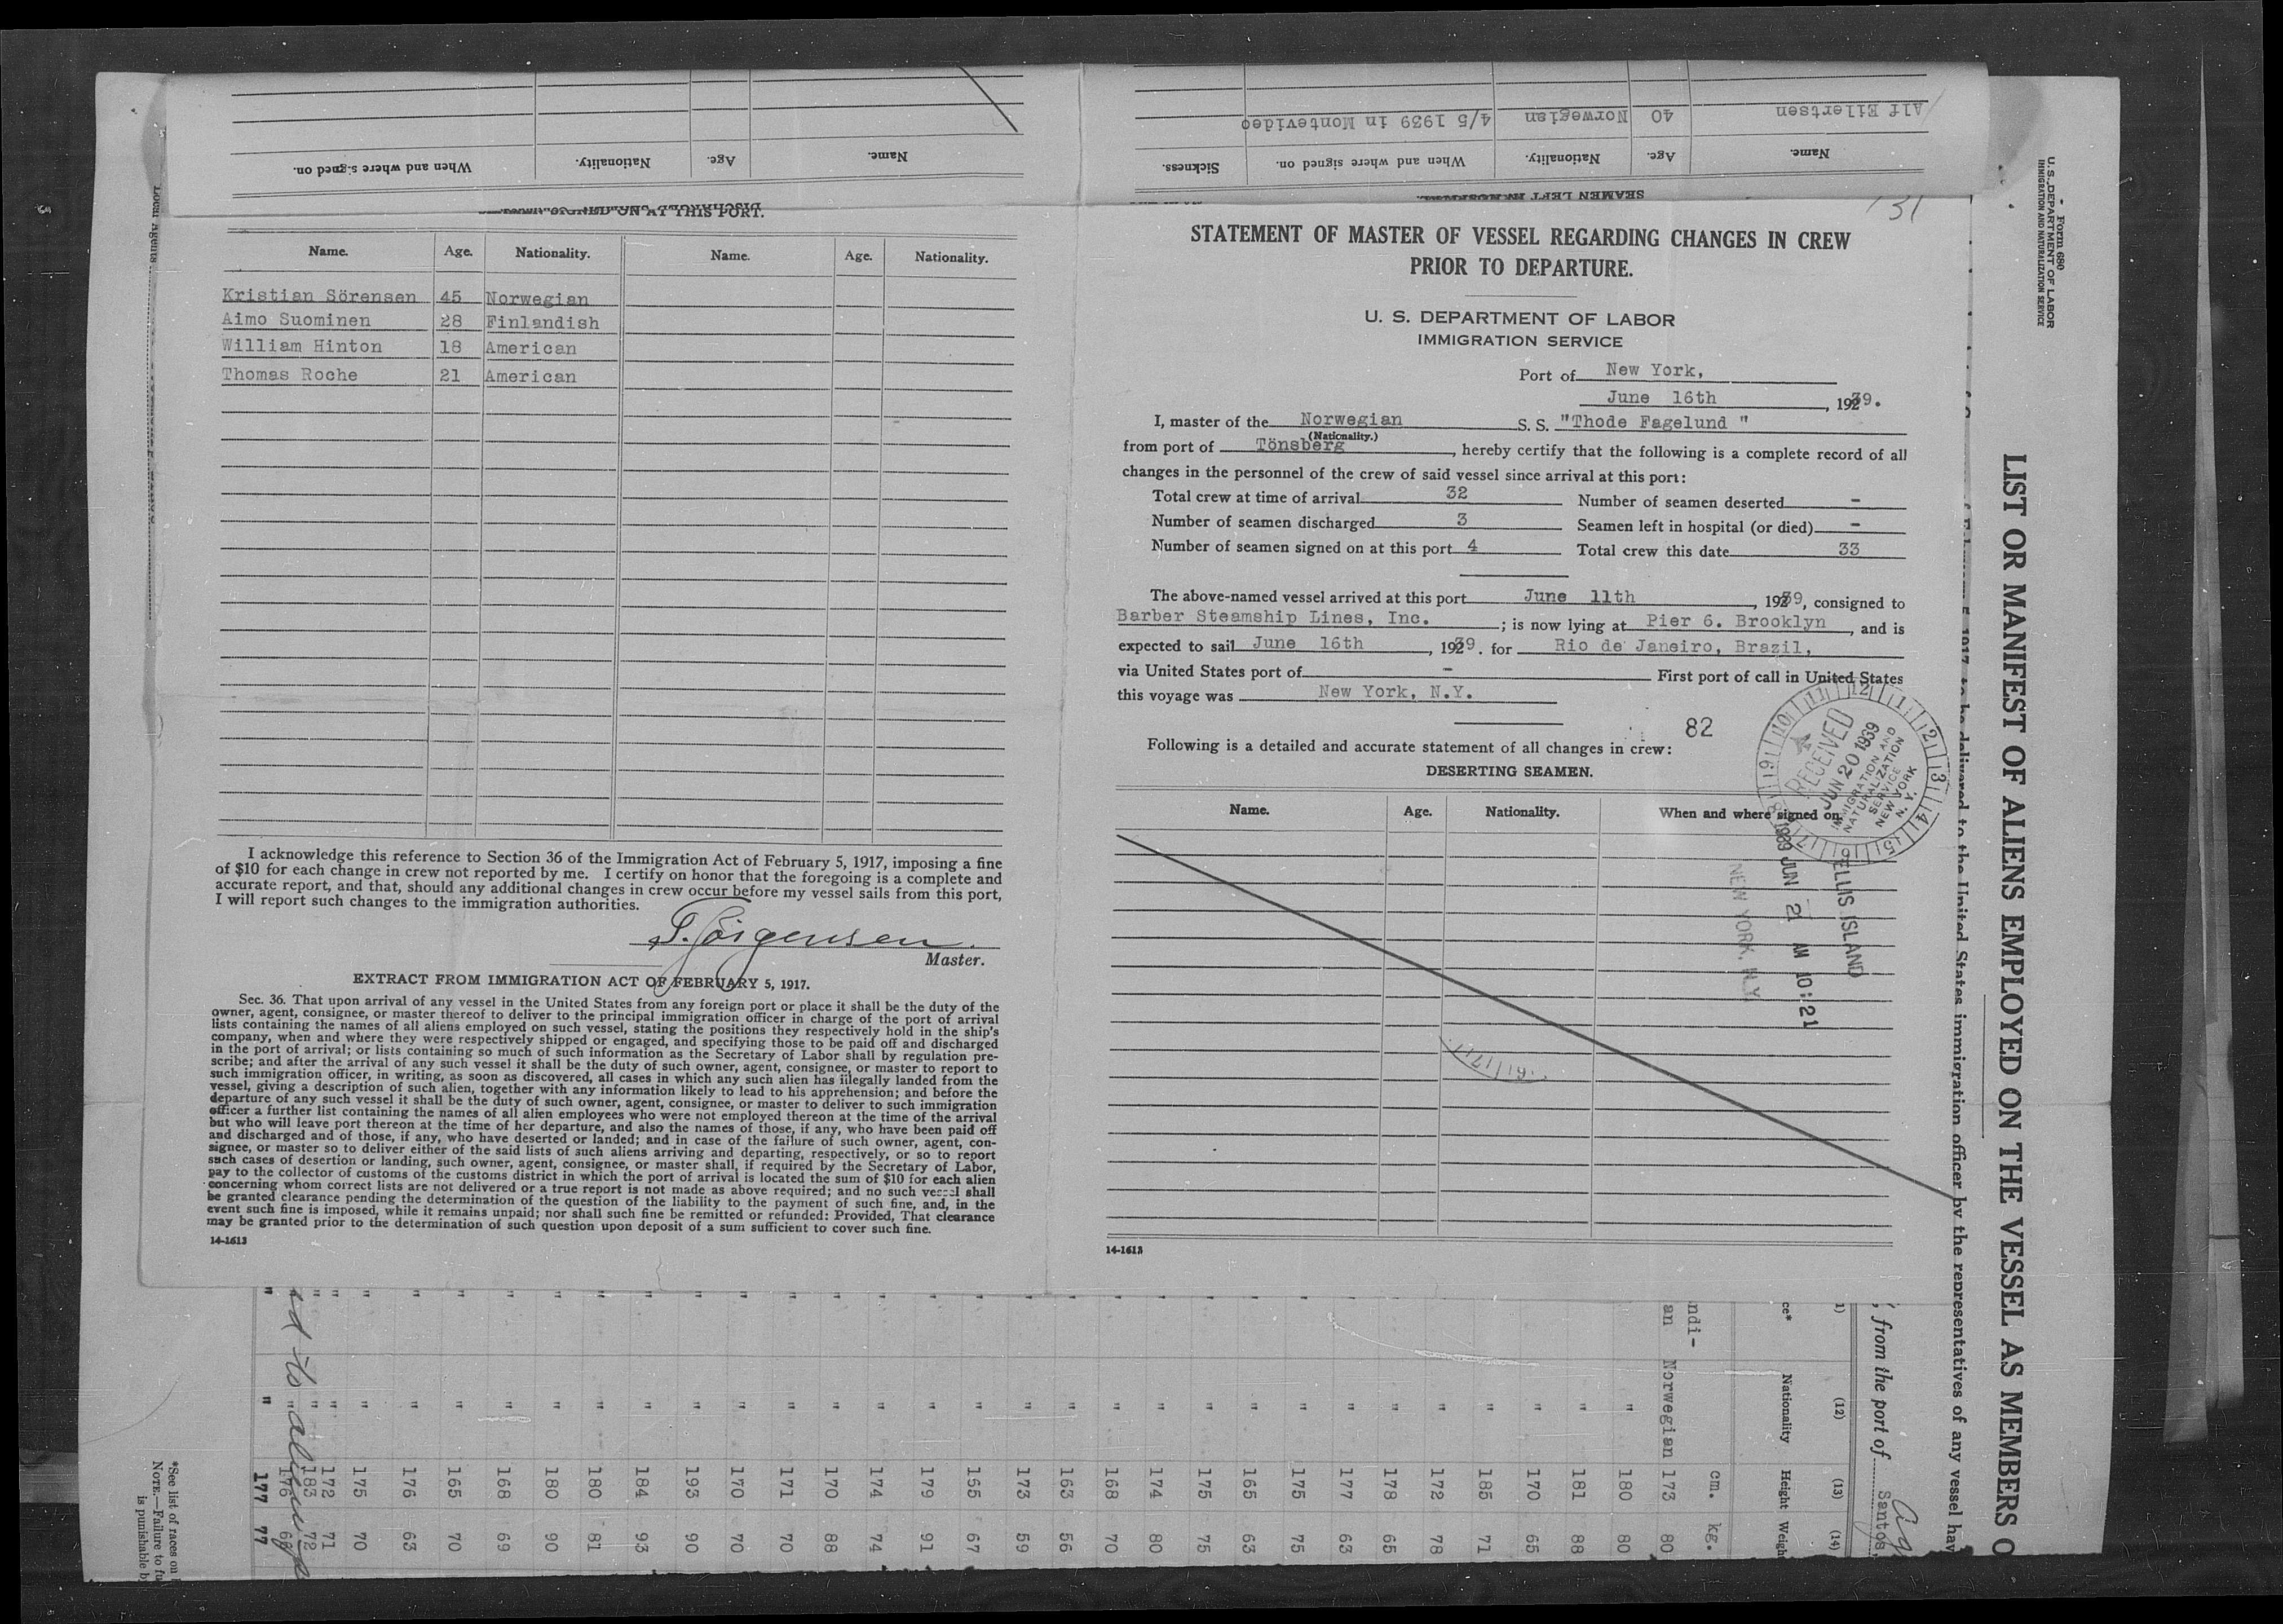 When and where signed on.
Nationality.
Age.
Name.
Sickness.
When and where signed on.
Nationality.
Age.
Name.
4/5 1939 in Montevideo
Norwegian
40
Alf Eilertsen
SIGNED ON AT THIS PORT.
Name. Age. Nationality. Name. Age. Nationality.
Kristian Sörensen 45 Norwegian
Aimo Suominen 28 Finlandish
William Hinton 18 American
Thomas Roche 21 American
I acknowledge this reference to Section 36 of the Immigration Act of February 5, 1917, imposing a fine
of $10 for each change in crew not reported by me. I certify on honor that the foregoing is a complete and
accurate report, and that, should any additional changes in crew occur before my vessel sails from this port,
I will report such changes to the immigration authorities.
T. Jörgensen.
Master.
EXTRACT FROM IMMIGRATION ACT OF FEBRUARY 5, 1917.
Sec. 36. That upon arrival of any vessel in the United States from any foreign port or place it shall be the duty of the
owner, agent, consignee, or master thereof to deliver to the principal immigration officer in charge of the port of arrival
lists containing the names of all aliens employed on such vessel, stating the positions they respectively hold in the ship's
company, when and where they were respectively shipped or engaged, and specifying those to be paid off and discharged
in the port of arrival; or lists containing so much of such information as the Secretary of Labor shall by regulation pre-
scribe; and after the arrival of any such vessel it shall be the duty of such owner, agent, consignee, or master to report to
such immigration officer, in writing, as soon as discovered, all cases in which any such alien has illegally landed from the
vessel, giving a description of such alien, together with any information likely to lead to his apprehension; and before the
departure of any such vessel it shall be the duty of such owner, agent, consignee, or master to deliver to such immigration
officer a further list containing the names of all alien employees who were not employed thereon at the time of the arrival
but who will leave port thereon at the time of her departure, and also the names of those, if any, who have been paid off
and discharged and of those, if any, who have deserted or landed; and in case of the failure of such owner, agent, con-
signee, or master so to deliver either of the said lists of such aliens arriving and departing, respectively, or so to report
such cases of desertion or landing, such owner, agent, consignee, or master shall, if required by the Secretary of Labor,
pay to the collector of customs of the customs district in which the port of arrival is located the sum of $10 for each alien
concerning whom correct lists are not delivered or a true report is not made as above required; and no such vessel shall
be granted clearance pending the determination of the question of the liability to the payment of such fine, and, in the
event such fine is imposed, while it remains unpaid; nor shall such fine be remitted or refunded: Provided, That clearance
may be granted prior to the determination of such question upon deposit of a sum sufficient to cover such fine.
14-1613
131
STATEMENT OF MASTER OF VESSEL REGARDING CHANGES IN CREW
PRIOR TO DEPARTURE.
U. S. DEPARTMENT OF LABOR
IMMIGRATION SERVICE
Port of New York,
June 16th, 1939.
I, master of the Norwegian S. S. "Thode Fagelund "
(Nationality.)
from port of Tönsberg, hereby certify that the following is a complete record of all
changes in the personnel of the crew of said vessel since arrival at this port:
Total crew at time of arrival 32 Number of seamen deserted -
Number of seamen discharged 3 Seamen left in hospital (or died) -
Number of seamen signed on at this port 4 Total crew this date 33
The above-named vessel arrived at this port June 11th, 1939, consigned to
Barber Steamship Lines, Inc.; is now lying at Pier 6. Brooklyn, and is
expected to sail June 16th, 1939. for Rio de Janeiro, Brazil,
via United States port of - First port of call in United States
this voyage was New York, N.Y.
82
Following is a detailed and accurate statement of all changes in crew:
DESERTING SEAMEN.
Name. Age. Nationality. When and where signed on.
RECEIVED
JUN 20 1939
IMMIGRATION AND
NATURALIZATION
SERVICE
NEW YORK
N. Y.
ELLIS ISLAND
1939 JUN 21 AM 10:21
NEW YORK, N.Y.
14-1613
Form 680
U. S. DEPARTMENT OF LABOR
IMMIGRATION AND NATURALIZATION SERVICE
LIST OR MANIFEST OF ALIENS EMPLOYED ON THE VESSEL AS MEMBERS O
1917 to be delivered to the United States immigration officer by the representatives of any vessel hav
from the port of Santos,
(12) (13) (14)
Nationality Height Weigh
cm. kg.
Norwegian 173 80
" 180 80
" 181 88
" 170 65
" 185 71
" 172 78
" 178 65
" 177 63
" 175 75
" 165 63
" 175 75
" 174 80
" 168 70
" 163 56
" 173 59
" 165 67
" 179 91
" 174 74
" 170 88
" 171 70
" 170 70
" 193 90
" 184 93
" 180 81
" 180 90
" 168 69
" 165 70
" 176 63
" 175 70
" 172 71
" 183 72
" 176
" 177 77
Local Agents
*See list of races on
NOTE.—Failure to fu
is punishable b